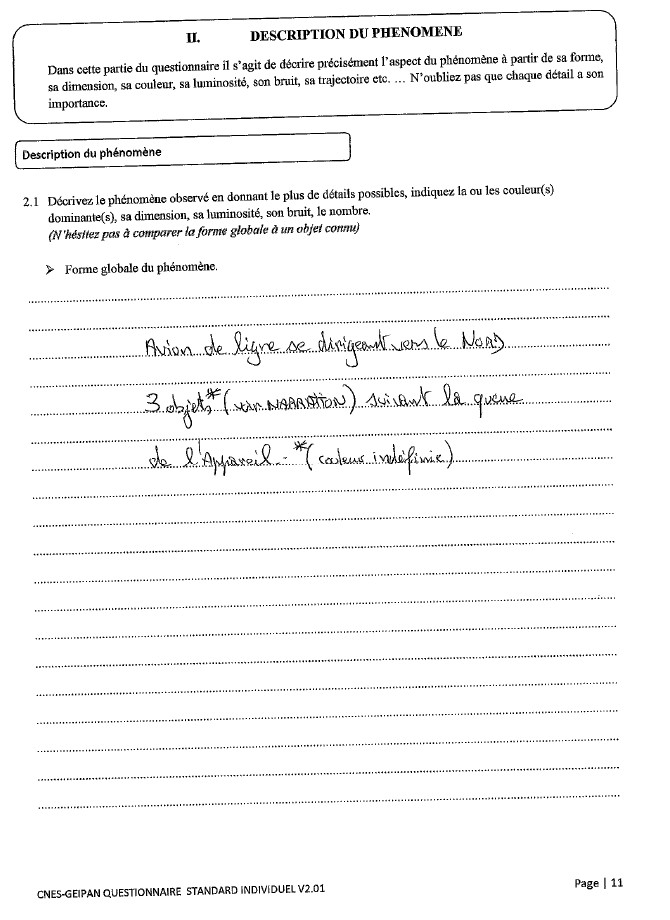 II. DESCRIPTION DU PHENOMENE
Dans cette partie du questionnaire il s'agit de décrire précisément l'aspect du phénomène à partir de sa forme,
sa dimension, sa couleur, sa luminosité, son bruit, sa trajectoire etc. … N'oubliez pas que chaque détail a son
importance.
Description du phénomène
2.1 Décrivez le phénomène observé en donnant le plus de détails possibles, indiquez la ou les couleur(s)
dominante(s), sa dimension, sa luminosité, son bruit, le nombre.
(N'hésitez pas à comparer la forme globale à un objet connu)
➤ Forme globale du phénomène.
Avion de ligne se dirigeant vers le Nord
3 objets* (voir NARRATION) suivant la queue
de l'Appareil - *(couleur indéfinie)
CNES-GEIPAN QUESTIONNAIRE STANDARD INDIVIDUEL V2.01
Page | 11